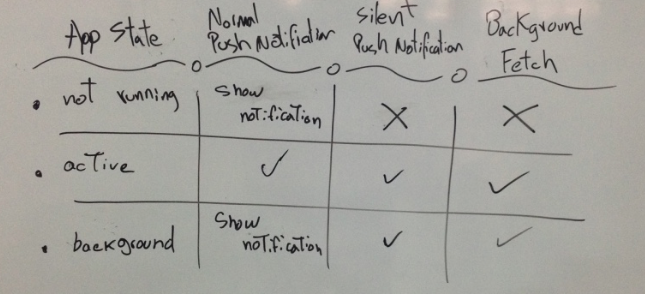 App State
Normal
Push Notification
Silent
Push Notification
Background
Fetch
• not running
Show
notification
X
X
• active
✓
✓
✓
• background
Show
notification
✓
✓